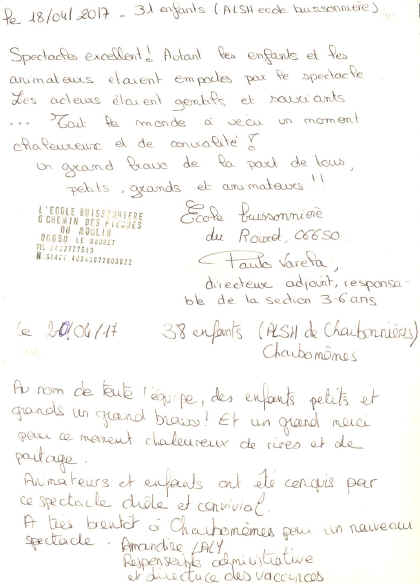 le 18/04/2017 - 31 enfants (ALSH ecole buissonnière)
Spectacles excellent! Autant les enfants et les
animateurs étaient emportés par le spectacle
Les acteurs étaient gentils et souriants
... Tout le monde a vécu un moment
chaleureux et de convivialité !
un grand bravo de la part de tous,
petits, grands et animateurs !!
L'ECOLE BUISSONNIERE
CHEMIN DES
DU MOULIN
06650 LE ROURET
École buissonnière
du Rouret, 06650
Paula Varela,
directeur adjoint, responsa-
ble de la section 3-6 ans
le 20/04/17 38 enfants (ALSH de Charbonnières)
Charbonnières
Au nom de toute l'équipe, des enfants petits et
grands un grand bravo! Et un grand merci
pour ce moment chaleureux de rires et de
partage.
Animateurs et enfants ont été conquis par
ce spectacle drôle et convivial.
A très bientôt à Charbonnières pour un nouveau
spectacle. Amandine LALY
Responsable administrative
et directrice des vacances